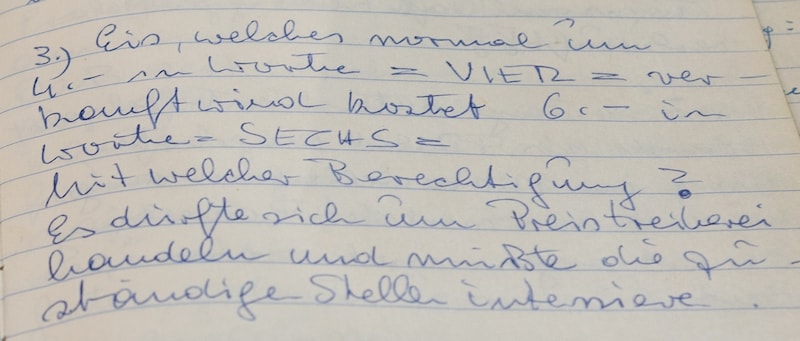 3.) Eis, welches normal um
4.- in Worte = VIER = ver-
kauft wird kostet 6.- in
Worte = SECHS =
Mit welcher Berechtigung ?
Es dürfte sich um Preistreiberei
handeln und müßte die zu-
ständige Stelle